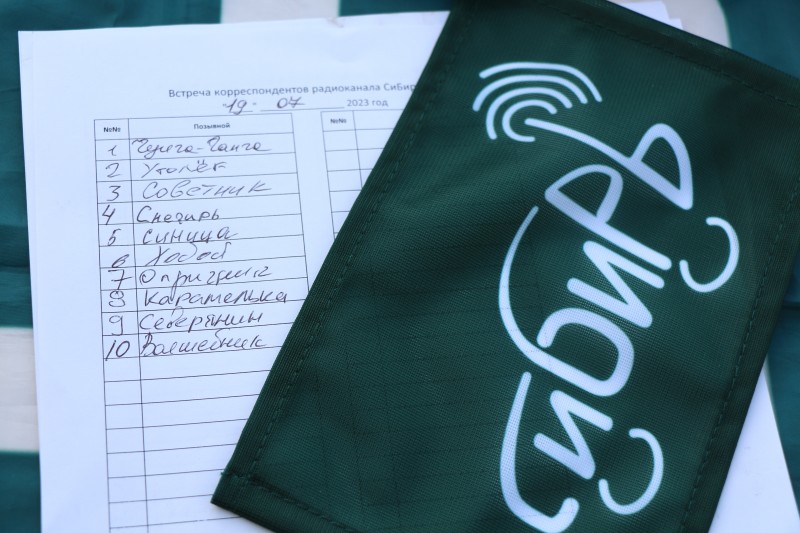 Встреча корреспондентов радиоканала СиБир
"19" 07 2023 год
№№ Позывной №№
1 Чунга-Чанга
2 Уголёк
3 Советник
4 Снегирь
5 Синица
6
7 Опричник
8 Карамелька
9 Северянин
10 Волшебник
СиБиРЬ